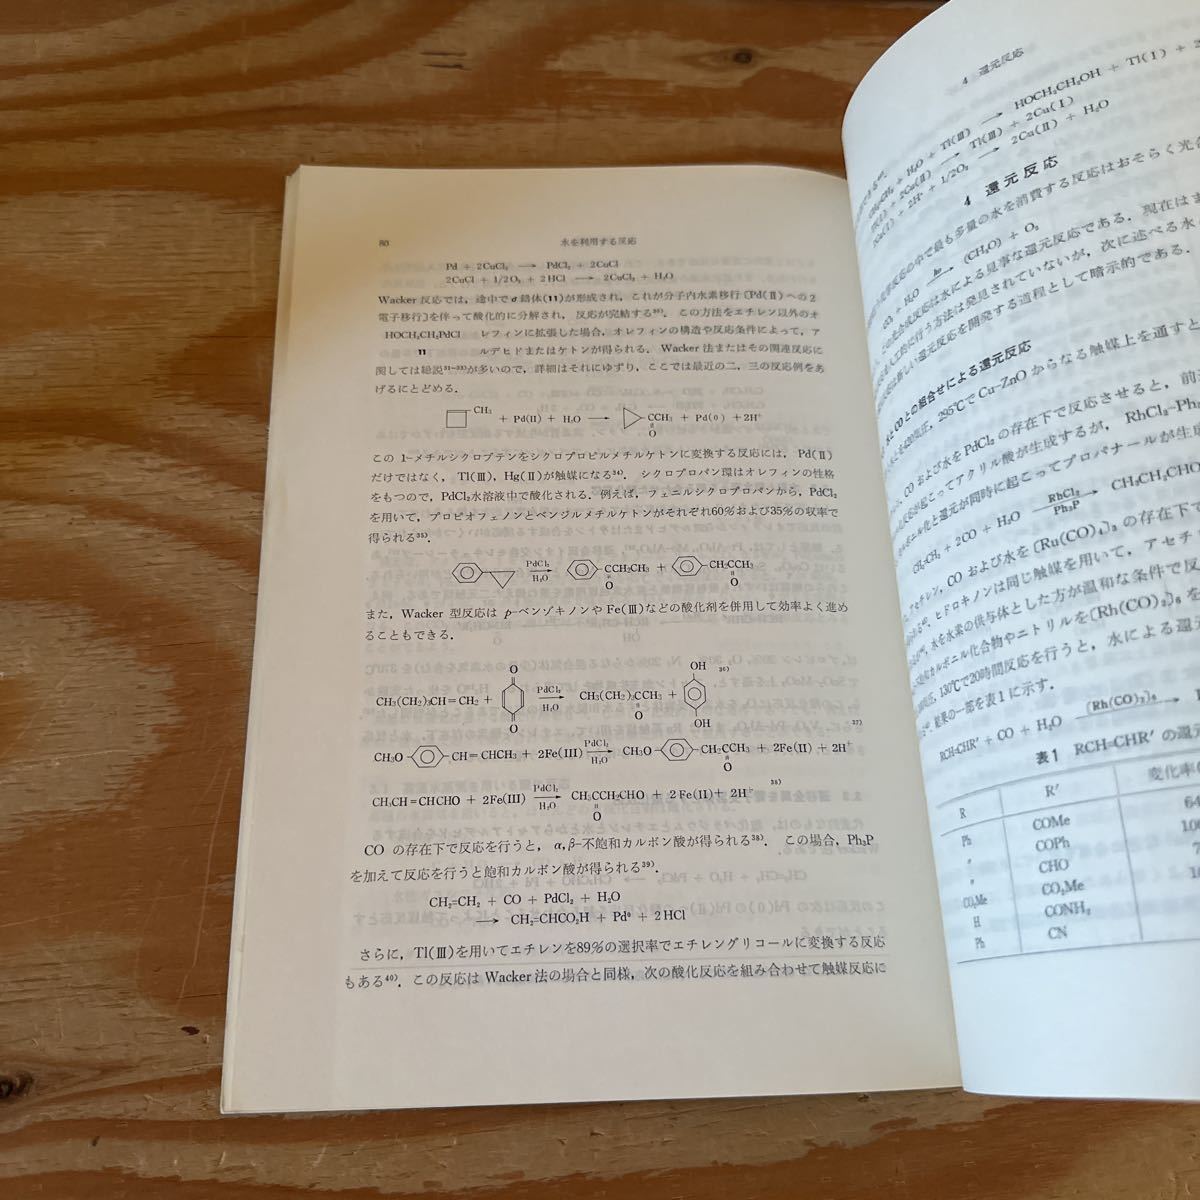 80 水を利用する反応
Pd + 2CuCl₂ → PdCl₂ + 2CuCl
2CuCl + 1/2O₂ + 2HCl → 2CuCl₂ + H₂O
Wacker 反応では，途中でσ錯体(11)が形成され，これが分子内水素移行〔Pd(Ⅱ)への2
電子移行〕を伴って酸化的に分解され，反応が完結する³⁰⁾．この方法をエチレン以外のオ
HOCH₂CH₂PdCl レフィンに拡張した場合，オレフィンの構造や反応条件によって，ア
11 ルデヒドまたはケトンが得られる．Wacker 法またはその関連反応に
関しては総説³¹⁻³³⁾が多いので，詳細はそれにゆずり，ここでは最近の二，三の反応例をあ
げるにとどめる．
CH₃ + Pd(II) + H₂O → CCH₃ + Pd(0) + 2H⁺
O
この 1-メチルシクロブテンをシクロプロピルメチルケトンに変換する反応には，Pd(Ⅱ)
だけではなく，Tl(Ⅲ)，Hg(Ⅱ)が触媒になる³⁴⁾．シクロプロパン環はオレフィンの性格
をもつので，PdCl₂水溶液中で酸化される．例えば，フェニルシクロプロパンから，PdCl₂
を用いて，プロピオフェノンとベンジルメチルケトンがそれぞれ60％および35％の収率で
得られる³⁵⁾．
PdCl₂
→ CCH₂CH₃ + CH₂CCH₃
H₂O O O
また，Wacker 型反応は p-ベンゾキノンや Fe(Ⅲ)などの酸化剤を併用して効率よく進め
ることもできる．
O OH 36)
CH₃(CH₂)₃CH=CH₂ + PdCl₂ → H₂O CH₃(CH₂)₃CCH₃ +
O O OH
37)
CH₃O CH=CHCH₃ + 2Fe(III) PdCl₂ → H₂O CH₃O CH₂CCH₃ + 2Fe(II) + 2H⁺
O
38)
CH₃CH=CHCHO + 2Fe(III) PdCl₂ → H₂O CH₃CCH₂CHO + 2Fe(II) + 2H⁺
O
CO の存在下で反応を行うと，α,β-不飽和カルボン酸が得られる³⁸⁾．この場合，Ph₃P
を加えて反応を行うと飽和カルボン酸が得られる³⁹⁾．
CH₂=CH₂ + CO + PdCl₂ + H₂O
→ CH₂=CHCO₂H + Pd⁰ + 2HCl
さらに，Tl(Ⅲ)を用いてエチレンを89％の選択率でエチレングリコールに変換する反応
もある⁴⁰⁾．この反応は Wacker 法の場合と同様，次の酸化反応を組み合わせて触媒反応に
4 還元反応
+ H₂O + Tl(Ⅲ) → HOCH₂CH₂OH + Tl(I) + 2
+ 2Cu(Ⅱ) → Tl(Ⅲ) + 2Cu(I)
+ 2H⁺ + 1/2O₂ → 2Cu(Ⅱ) + H₂O
4 還元反応
の中で最も多量の水を消費する反応はおそらく光合
CO₂ + H₂O hν → (CH₂O) + O₂
光合成反応は水による見事な還元反応である．現在はま
人工的に行う方法は発見されていないが，次に述べる水
新しい還元反応を開発する道程として暗示的である．
COとの組合せによる還元反応
420気圧，295℃で Cu-ZnO からなる触媒上を通すと
CO および水を PdCl₂ の存在下で反応させると，前
反応が起こってアクリル酸が生成するが，RhCl₃-Ph₃
ルボニル化と還元が同時に起こってプロパナールが生成
CH₂=CH₂ + 2CO + H₂O RhCl₃ → Ph₃P CH₃CH₂CHO
アセチレン，CO および水を〔Ru(CO)₄〕₃ の存在下で
ヒドロキノンは同じ触媒を用いて，アセチ
水を水素の供与体とした方が温和な条件で反
カルボニル化合物やニトリルを〔Rh(CO)₃〕₆ を
130℃で20時間反応を行うと，水による還元
結果の一部を表1に示す．
RCH=CHR′ + CO + H₂O 〔Rh(CO)₃〕₆ →
表1 RCH=CHR′ の還元
R R′ 変化率
Ph COMe 64
〃 COPh 100
〃 CHO 7
CO₂Me CO₂Me
H CONH₂
Ph CN